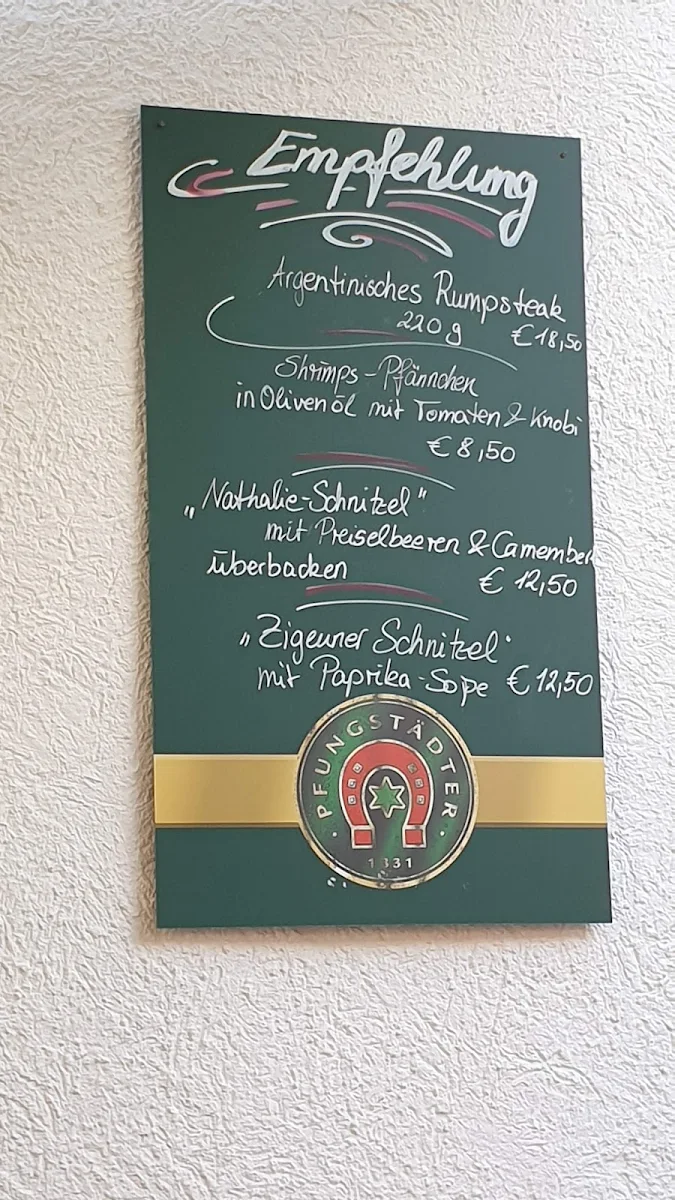 Empfehlung
Argentinisches Rumpsteak
220g € 18,50
Shrimps-Pfännchen
in Olivenöl mit Tomaten & Knobi
€ 8,50
„Nathalie-Schnitzel"
mit Preiselbeeren & Camember
überbacken € 12,50
„Zigeuner Schnitzel"
mit Paprika-Soße € 12,50
· PFUNGSTÄDTER ·
1831